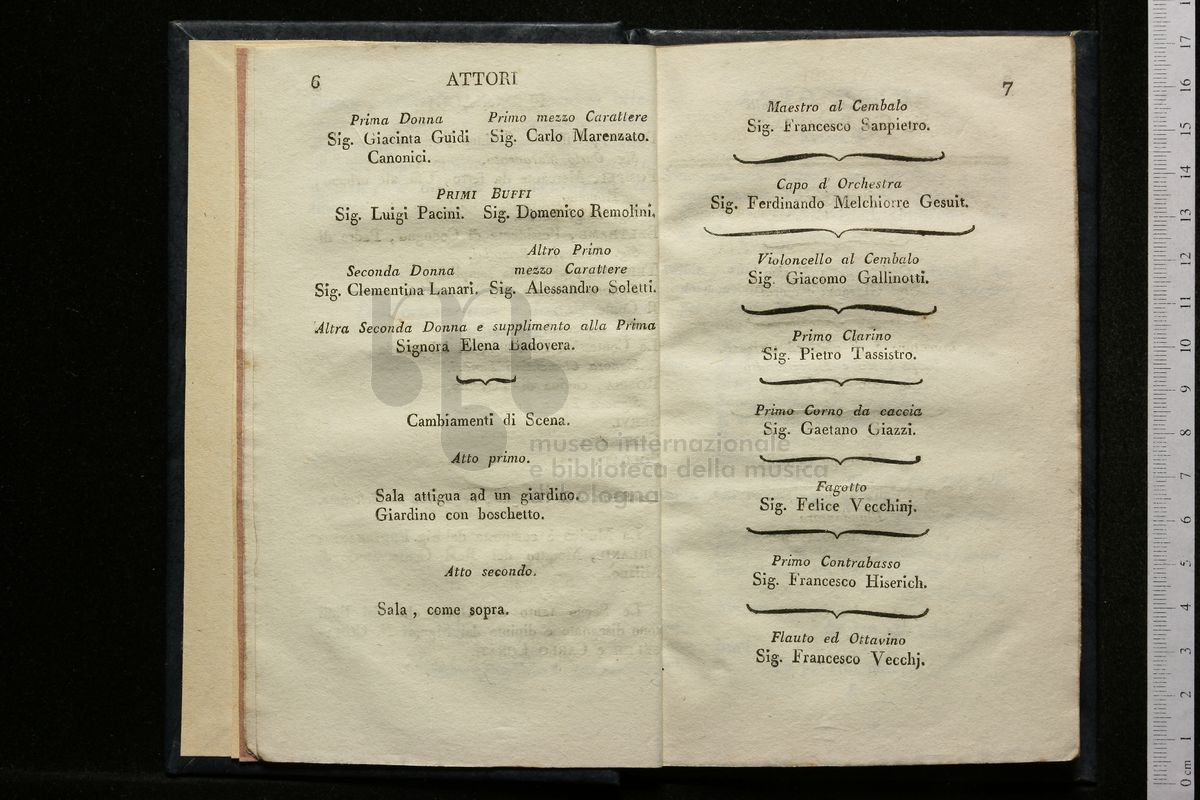 6
ATTORI
Prima Donna
Sig. Giacinta Guidi
Canonici.
Primo mezzo Carattere
Sig. Carlo Marenzato.
PRIMI BUFFI
Sig. Luigi Pacini. Sig. Domenico Remolini.
Seconda Donna
Sig. Clementina Lanari.
Altro Primo
mezzo Carattere
Sig. Alessandro Soletti.
Altra Seconda Donna e supplimento alla Prima
Signora Elena Badovera.
Cambiamenti di Scena.
Atto primo.
Sala attigua ad un giardino.
Giardino con boschetto.
Atto secondo.
Sala , come sopra.
museo internazionale
e biblioteca della musica
di bologna
7
Maestro al Cembalo
Sig. Francesco Sanpietro.
Capo d' Orchestra
Sig. Ferdinando Melchiorre Gesuit.
Violoncello al Cembalo
Sig. Giacomo Gallinotti.
Primo Clarino
Sig. Pietro Tassistro.
Primo Corno da caccia
Sig. Gaetano Giazzi.
Fagotto
Sig. Felice Vecchinj.
Primo Contrabasso
Sig. Francesco Hiserich.
Flauto ed Ottavino
Sig. Francesco Vecchj.
17
16
15
14
13
12
11
10
9
8
7
6
5
4
3
2
1
0 cm